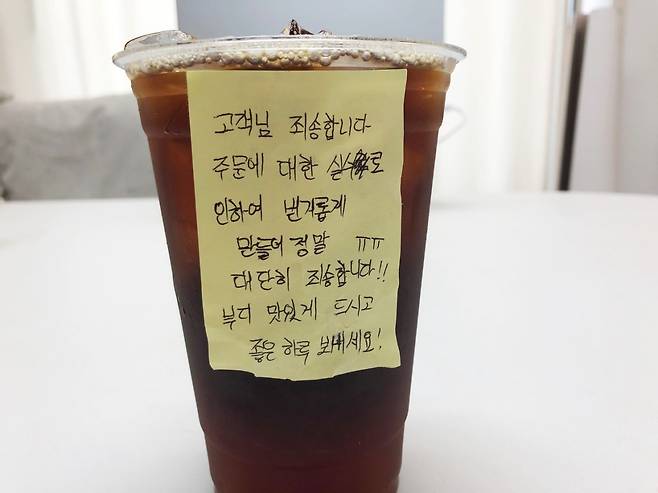 고객님 죄송합니다
주문에 대한 실수로
인하여 번거롭게
만들어 정말 ㅠㅠ
대단히 죄송합니다!!
부디 맛있게 드시고
좋은 하루 보내세요!